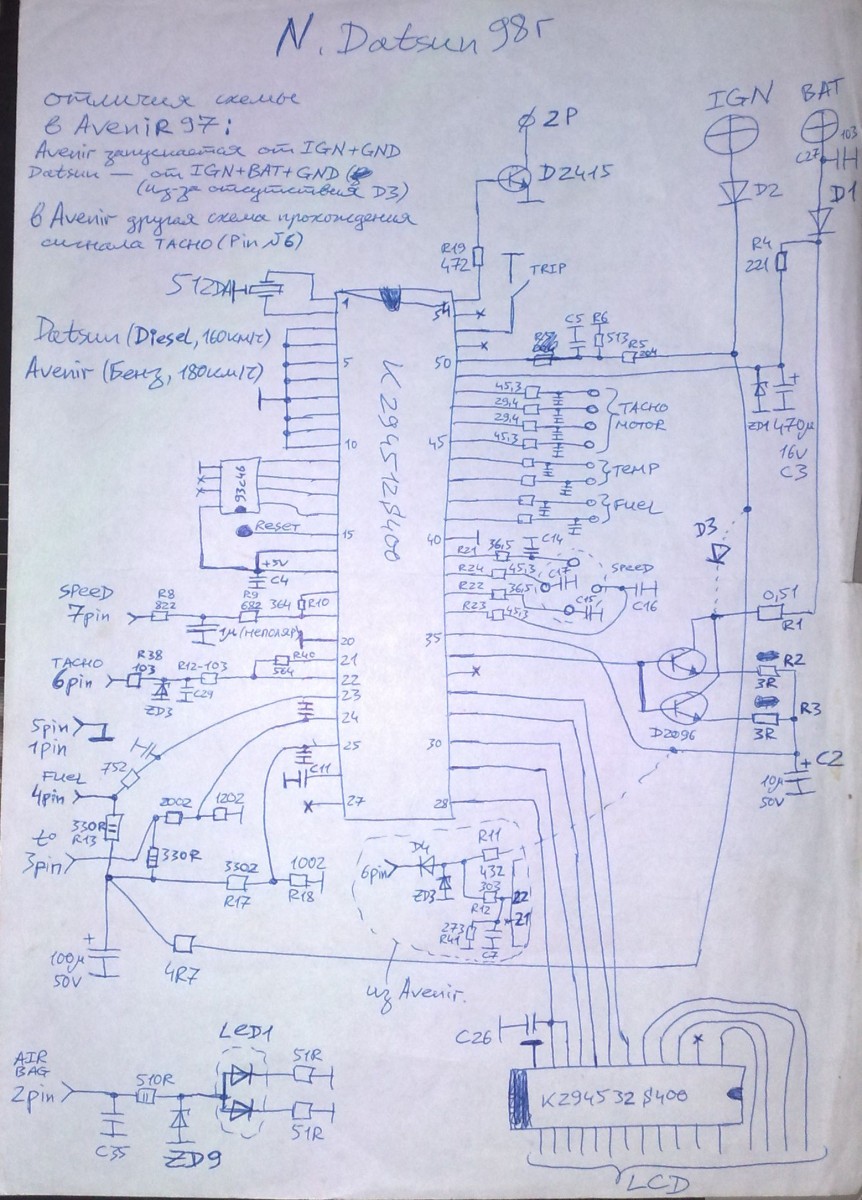 N. Datsun 98г
отличия схемы
в AveniR 97:
Avenir запускается от IGN+GND
Datsun — от IGN+BAT+GND (
(из-за отсутствия D3)
в Avenir другая схема прохождения
сигнала TACHO (Pin №6)
IGN
BAT
103
C27
D2
D1
R4
221
2P
D2415
R19
472
TRIP
512DA
Datsun (Diesel, 160км/ч)
Avenir (Бенз, 180км/ч)
1
5
10
15
20
21
22
23
24
25
27
54
50
45
40
35
30
28
K294512S400
C5
R6
513
R5
204
ZD1
470μ
16V
C3
45,3
29,4
29,4
45,3
TACHO
MOTOR
TEMP
FUEL
93C46
Reset
+5V
C4
R21
36,5
C14
R24
45,3
C17
R22
36,5
C15
R23
45,3
SPEED
C16
D3
0,51
R1
R2
3R
R3
3R
D2096
C2
10μ
50V
SPEED
7pin
R8
822
R9
682
364
R10
1μ (неполяр)
TACHO
6pin
R38
103
ZD3
R12-103
C29
R40
564
5pin
1pin
752
FUEL
4pin
330R
R13
t°
3pin
2002
1202
330R
3302
R17
1002
R18
C11
100μ
50V
4R7
6pin
D4
ZD3
R11
432
303
R12
22
21
273
R41
C7
из Avenir.
C26
K294532S400
LCD
AIR
BAG
2pin
510R
C35
ZD9
LED1
51R
51R